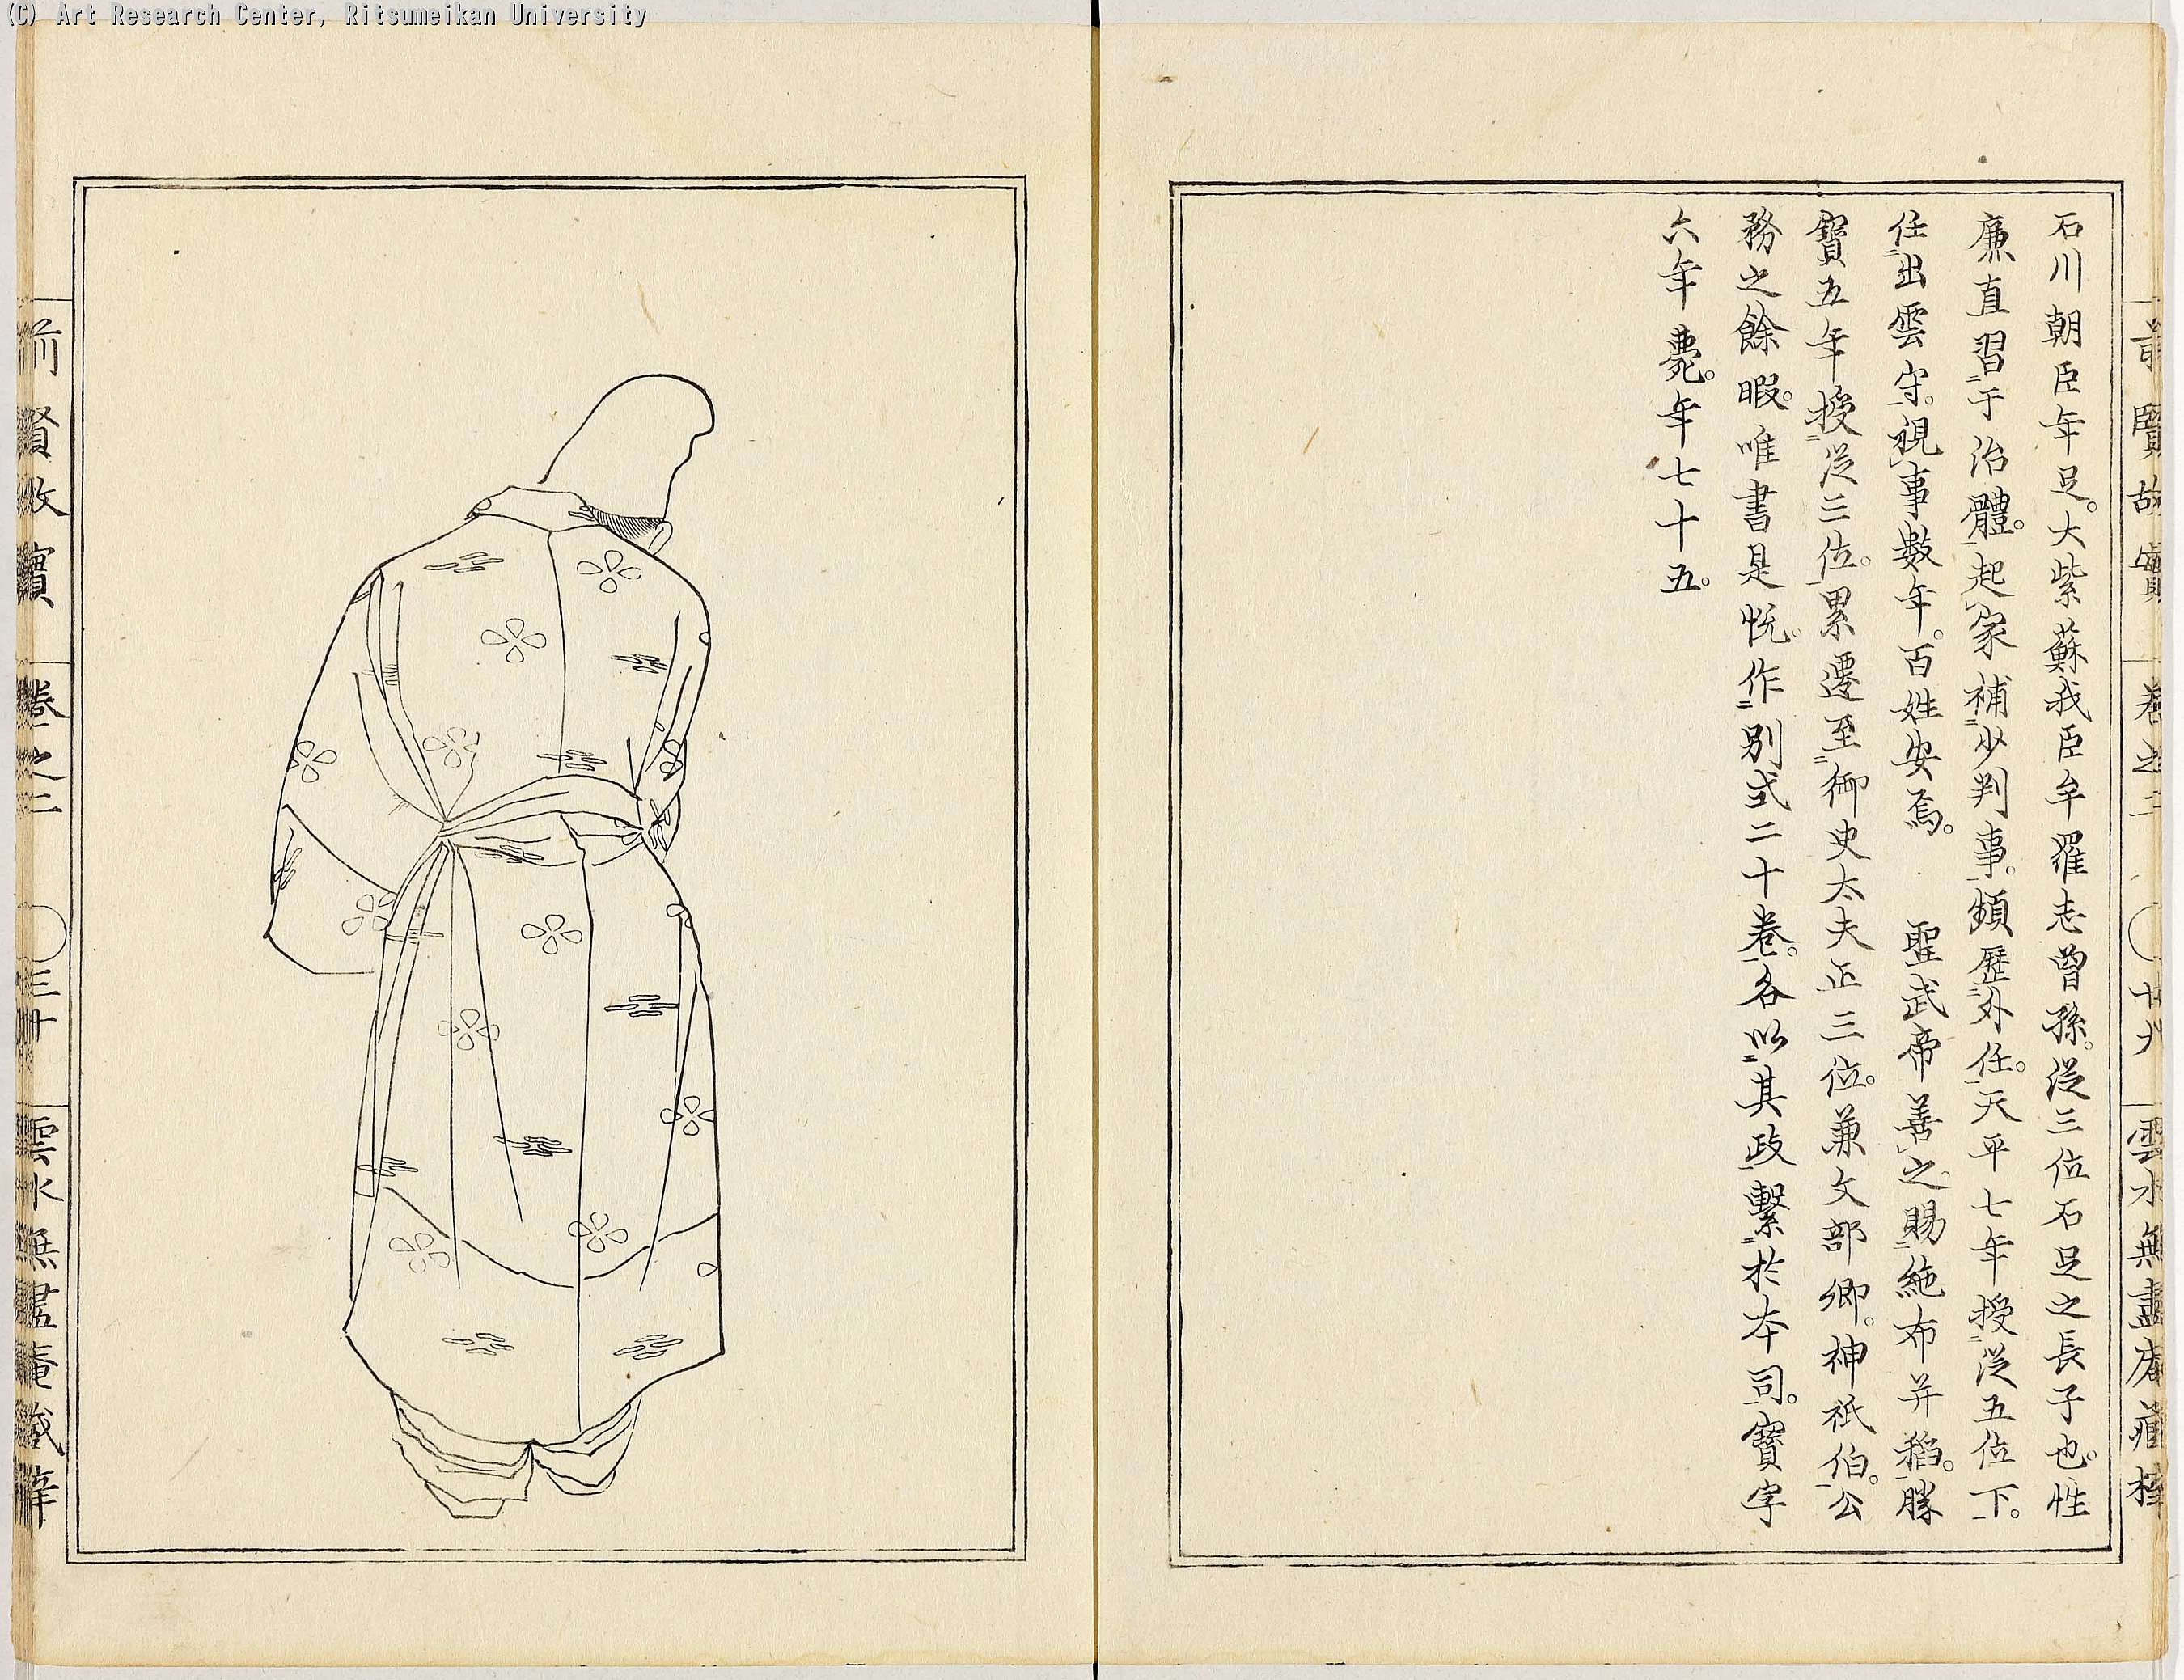 (C) Art Research Center, Ritsumeikan University
前賢故實 卷之二 廿九 雲水無盡庵藏梓
石川朝臣年足。大紫蘇我臣牟羅志曾孫。從三位石足之長子也。性
廉直習二于治體一。起レ家補二少判事一。頻歷二外任一。天平七年授二從五位下一。
任二出雲守一。視レ事數年。百姓安焉。 聖武帝善レ之。賜二絁布并稻一。勝
寶五年授二從三位一。累遷至二御史大夫正三位一。兼文部卿。神祇伯一。公
務之餘暇。唯書是悅。作二別式二十卷一。各以二其政一繫二於本司一。寶字
六年薨。年七十五。
前賢故實 卷之二 三十 雲水無盡庵藏梓